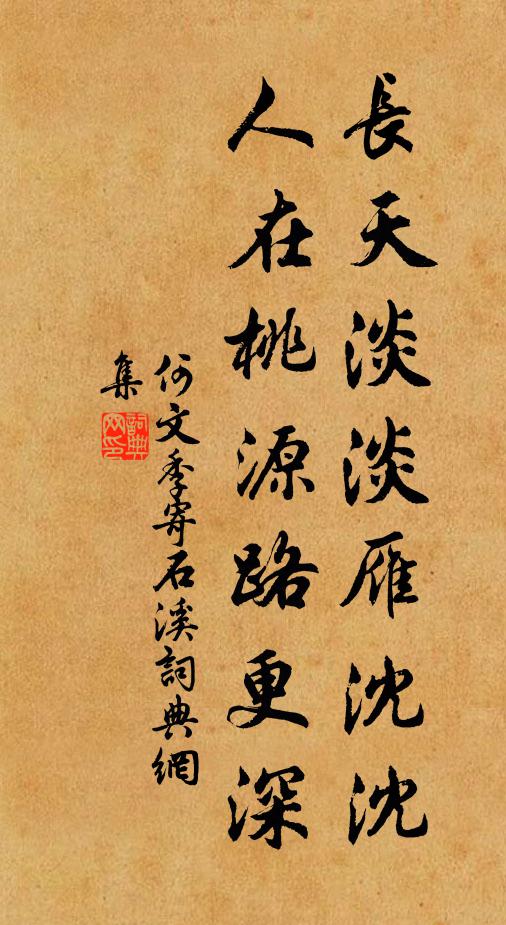 長天淡淡雁沈沈
人在桃源路更深
何文季寄石溪詞典網
集
詞典網印